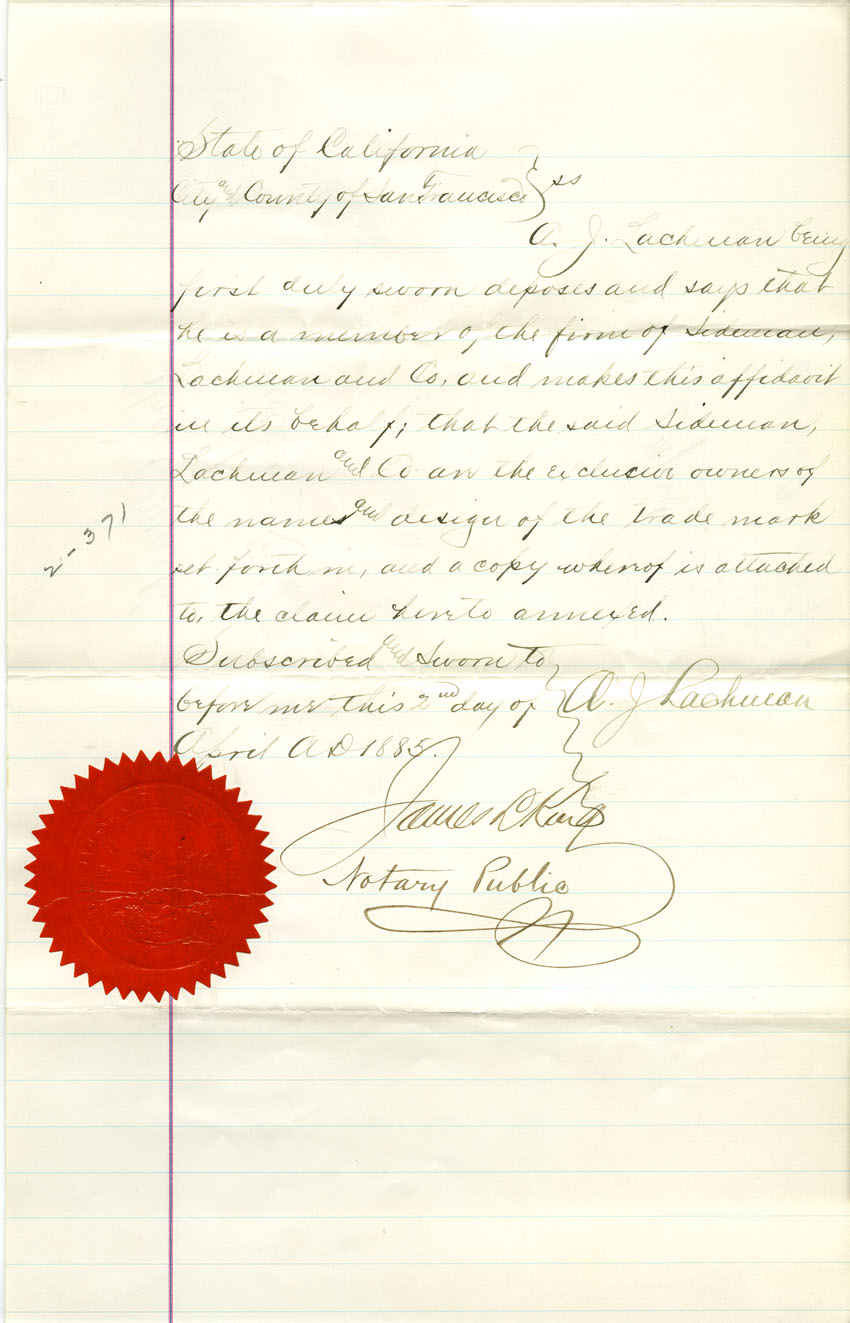 State of California
City and County of San Francisco } ss
A. J. Lachman being
first duly sworn deposes and says that
he is a member of the firm of Sideman,
Lachman and Co, and makes this affidavit
in its behalf; that the said Sideman,
Lachman and Co are the exclusive owners of
the name and design of the trade mark
set forth in, and a copy whereof is attached
to, the claim hereto annexed.
Subscribed and sworn to
before me this 2nd day of
April A D 1885.
A. J. Lachman
James L King
Notary Public
2-371